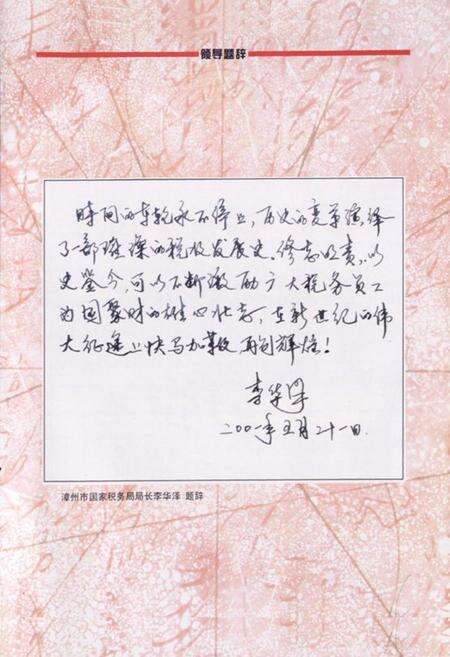 领导题辞
时间的车轮永不停止，历史的变革演绎
了一部璀璨的税收发展史。修志明责，以
史鉴今，可以不断激励广大税务员工
为国聚财的雄心壮志，在新世纪的伟
大征途上快马加鞭，再创辉煌！
李华泽
二〇〇一年五月二十一日
漳州市国家税务局局长李华泽 题辞